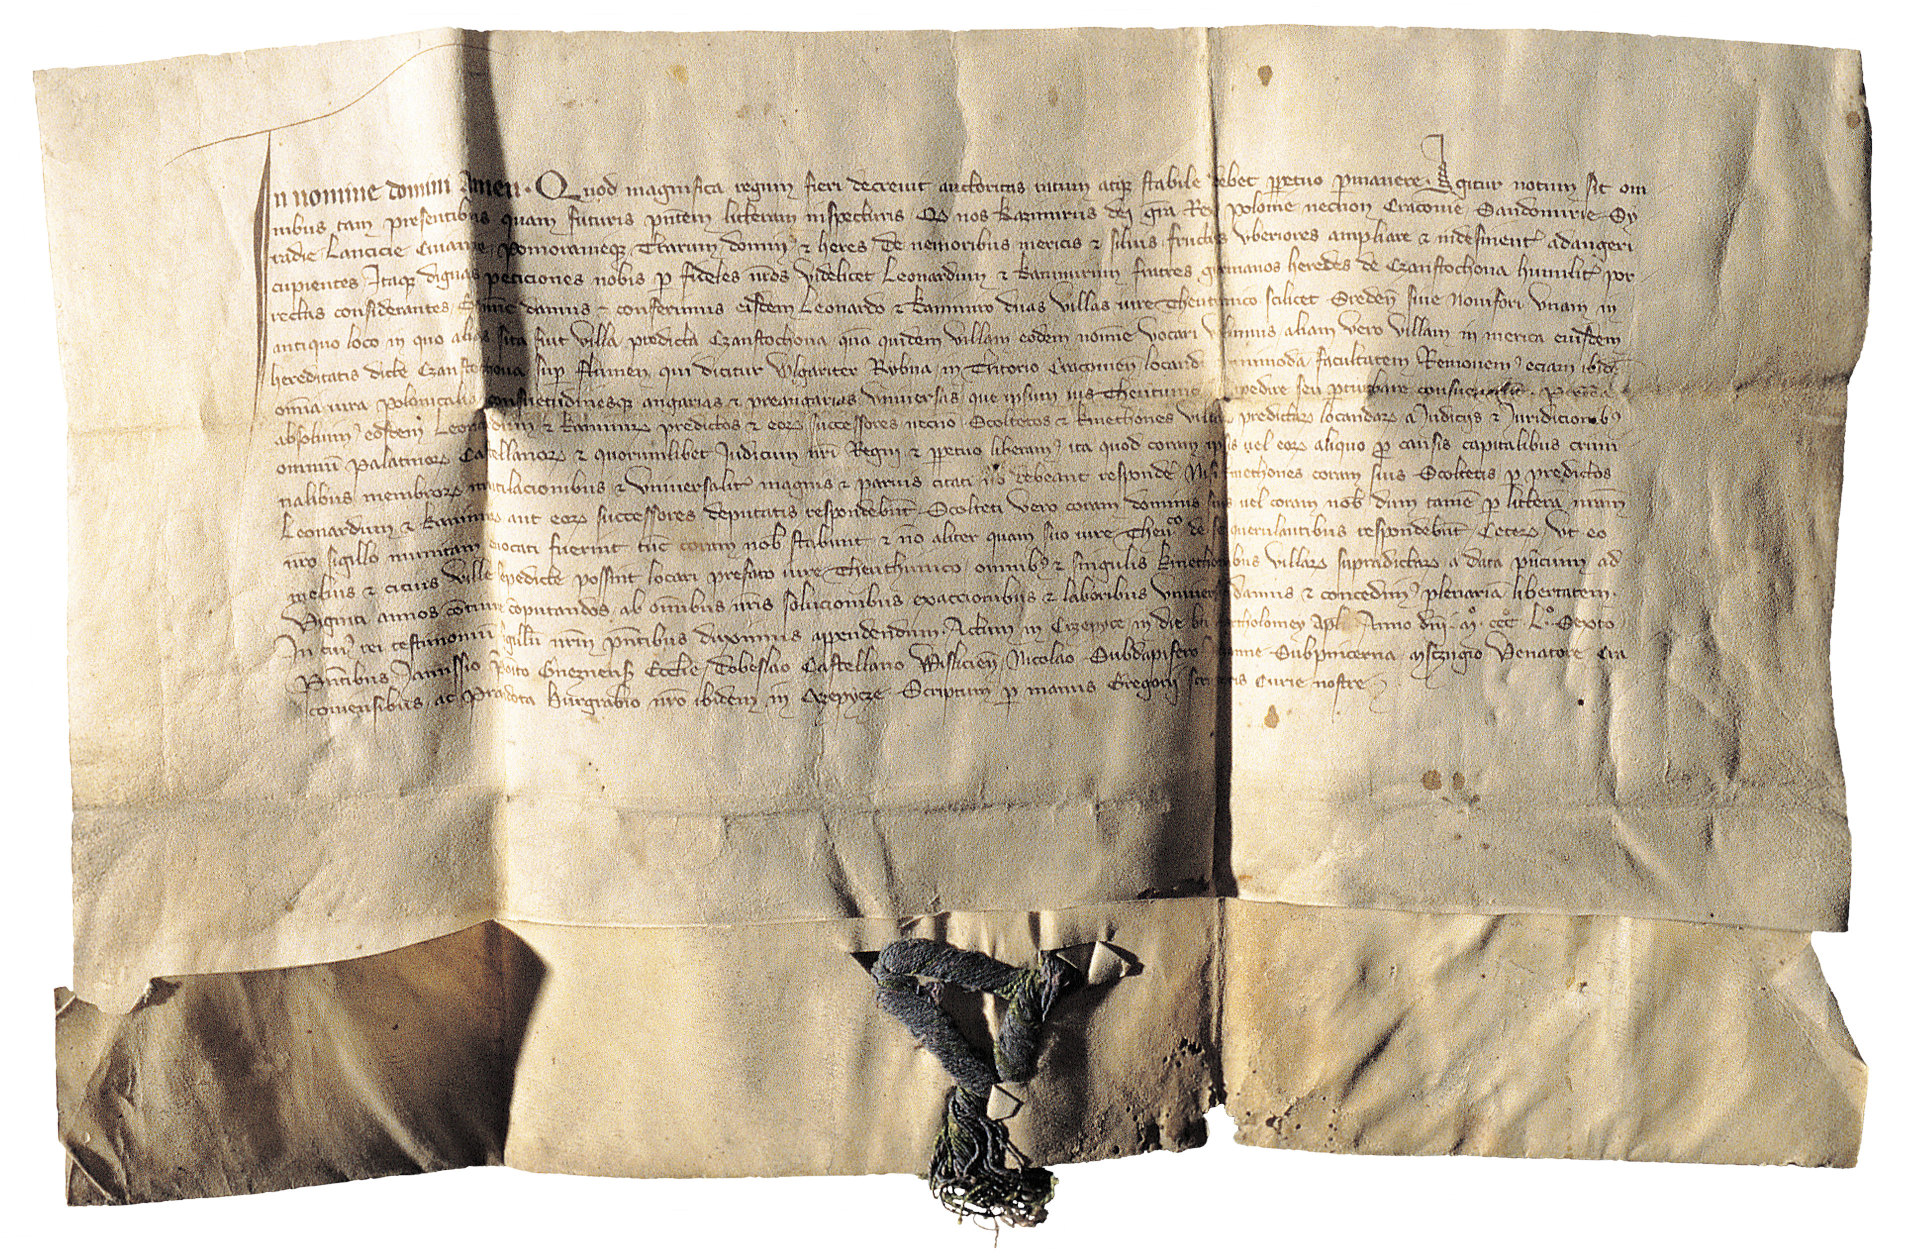 In nomine domini Amen. Quod magnifica regum fieri decrevit auctoritas ratum atqꝫ stabile debet ꝑpetuo ꝑmanere. Igitur notum sit om
nibus tam presentibus quam futuris pn̄tem litteram inspecturis Qd̄ nos Kazimirus dei gr̄a Rex polonie necnon Cracovie Sandomirie Sy
radie Lancicie Cuiavie pomoranieqꝫ Tr̄arum domin⁹ ⁊ heres de nemoribus mericis ⁊ silvis fructus vberiores ampliare ⁊ adaugeri
cupientes Itaqꝫ dignas peticiones nobis ꝑ fideles nr̄os videlicet Leonardum ⁊ Kazimirum fratres germanos heredes de Czanstochova humilit᷑ por
rectas considerantes damus ⁊ conferimus eisdem Leonardo ⁊ Kazimiro duas villas iure Theutunico scilicet Sreden̄ sive Novifori vnam in
antiquo loco in quo alias sita fuit villa predicta Czanstochova quā quidem villam eodem nomīe vocari volumus aliam vero villam in merica eiusdem
hereditatis dicte Czanstochova sup̄ flumen qui dicitur wlgariter Rybna in Tritorio Cracovien̄ locandi facultatem Removem⁹ eciam ibidē
om̄ia iura polonicalia consuetudinesqꝫ angarias ⁊ preangarias vniversas que ipsum ius Theutunic seu ꝑturbare
absolvim⁹ eosdem Leonardum ⁊ Kazimirꝝ predictos ⁊ eorꝝ successores necnō Scoltetos ⁊ kmethones villarꝝ predictarꝝ locandarꝝ a Iudiciis ⁊ Iuridicionib⁹
omniū palatinorꝝ Castellanorꝝ ⁊ quorumlibet Iudicum nr̄i Regni ⁊ ꝑpetuo liberam⁹ ita quod coram ipsis vel eorꝝ aliquo ꝓ causis capitalibus crimi
nalibus membrorꝝ mutilacionibus ⁊ vniversalit᷑ magnis ⁊ parvis citati nō debeant respondē Nisi kmethones coram suis Scoltetis ꝑ predictos
Leonardum ⁊ Kazimirꝝ aut eorꝝ successores deputatis respondebūt Scolteti vero coram dominis suis vel coram nob̄ dum tamē ꝑ litterā nr̄am
nr̄o sigillo munitam evocati fuerint tūc coram nob̄ stabunt ⁊ nō aliter quam suo iure Theuᶜᵒ de se querulantibus respondebūt Ceterꝝ vt eo
melius ⁊ cicius ville sepedicte possint locari prefato iure Theuthunico omnib⁹ ⁊ singulis kmethonibus villarꝝ supradictarꝝ a data pn̄cium ad
viginti annos cōtinue cōputandos ab om̄ibus nr̄is solucionibus exaccionibus ⁊ laboribus damus ⁊ concedim⁹ plenariā libertatem.
In cui⁹ rei testimonium sigillū nr̄m pn̄tibus duximus appendendum. Actum in Crzepyce in die bti Bartholomey Apl̄i Anno dn̄i Mᵒ cccᵒ Lᵒ Sexto
pn̄tibus Janussio ppoito Gneznens̄ Ecclie Dobeslao Castellano Wislicien̄ Nicolao Subdapifero Subpincerna Venatore Cra
coviensibus ac Burgrabio nr̄o ibidem in Crzepycze Scriptum ꝑ manus Gregorii scriptoris Curie nostre.